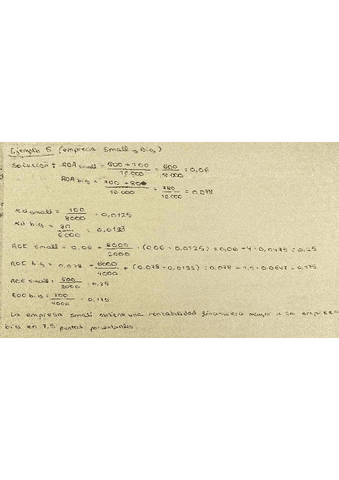 Ejemplo 5 (empresa Small y Big)
Solución: ROA small = 500 + 100 / 10.000 = 600 / 10.000 = 0,06
ROA big = 700 + 80 / 10.000 = 780 / 10.000 = 0,078
Kd small = 100 / 8000 = 0,0125
Kd big = 80 / 6000 = 0,0133
ROE small = 0,06 + 8000 / 2000 · (0,06 - 0,0125) = 0,06 + 4 · 0,0475 = 0,25
ROE big = 0,078 + 6000 / 4000 · (0,078 - 0,0133) = 0,078 + 1,5 · 0,0647 = 0,175
ROE small = 500 / 2000 = 0,25
ROE big = 700 / 4000 = 0,175
La empresa small obtiene una rentabilidad financiera mayor a la empresa
big en 7,5 puntos porcentuales.